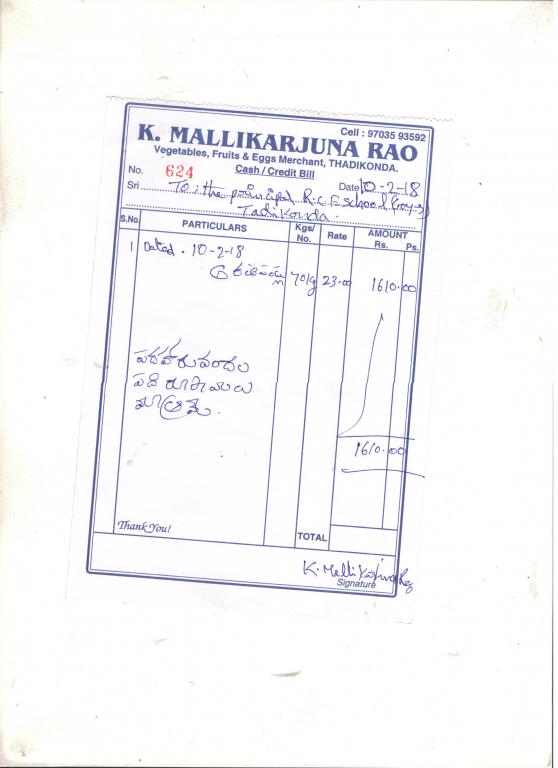 Cell : 97035 93592
K. MALLIKARJUNA RAO
Vegetables, Fruits & Eggs Merchant, THADIKONDA.
Cash / Credit Bill
No. 624
Date 10-2-18
Sri To: the principal R.C.E school (Boys)
Tadikonda.
S.No. PARTICULARS Kgs/ No. Rate AMOUNT Rs. Ps.
1 Dated. 10-2-18
70kg 23-00 1610.00
పదహారువందల
పది రూపాయలు
మాత్రమే.
1610.00
Thank You!
TOTAL
K. Mallikarjuna Rao
Signature